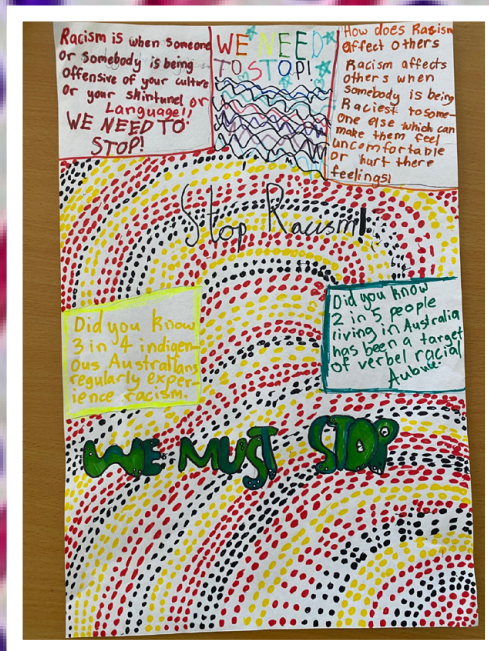 Racism is when someone
or somebody is being
offensive of your culture
or your skintunel or
Language!!
WE NEED TO
STOP!
WE NEED
TO STOP!
How does Rasism
affect others
Racism affects
others when
somebody is being
Raciest to some-
one else which can
make them feel
uncomfortable
or hurt there
feelings!
Stop Racism!
Did you know
3 in 4 indigen-
ous Australians
regularly exper-
ience racism.
Did you know
2 in 5 people
living in Australia
has been a target
of verbel racial
WE MUST STOP